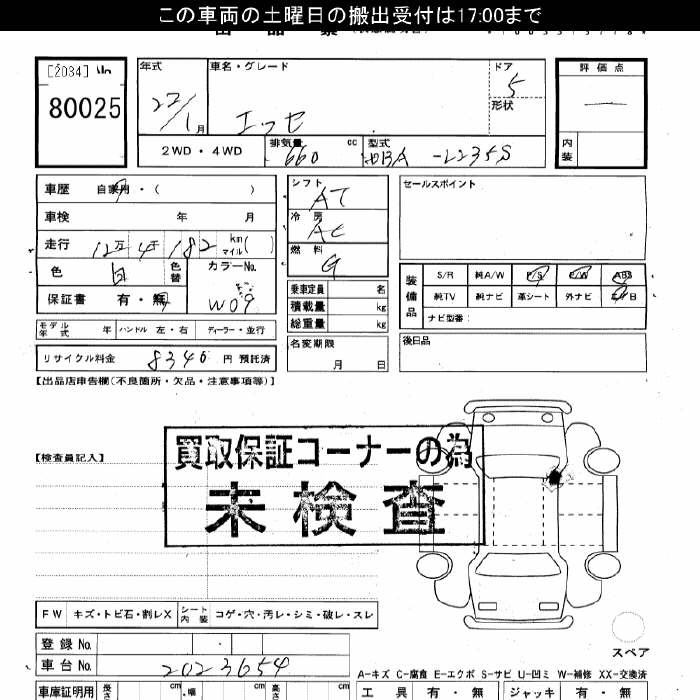 この車両の土曜日の搬出受付は17:00まで
[2034]
80025
年式 車名・グレード ドア 評価点
22/1月 エッセ 5
形状
2WD・4WD 排気量 660 cc 型式 -L235S
内装
車歴 自家用・( )
シフト AT
セールスポイント
車検 年 月
冷房 AC
走行 12万4千182 km マイル( )
燃料 G
色 白 色替 カラーNo. W09
保証書 有・無
乗車定員 名
積載量 kg
総重量 kg
装備品 S/R 純A/W P/S P/W ABS
純TV 純ナビ 革シート 外ナビ
ナビ型番:
モデル年式 年 ハンドル 左・右 ディーラー・並行
名変期限 月 日
後日品
リサイクル料金 8340 円 預託済
【出品店申告欄(不良箇所・欠品・注意事項等)】
【検査員記入】
買取保証コーナーの為
未検査
FW キズ・トビ石・割レX シート内装 コゲ・穴・汚レ・シミ・破レ・スレ
スペア
登録 No.
車台 No. 2023654
A-キズ C-腐食 E-エクボ S-サビ U-凹ミ W-補修 XX-交換済
車庫証明用 長さ cm 幅 cm 高さ cm
工具 有・無 ジャッキ 有・無